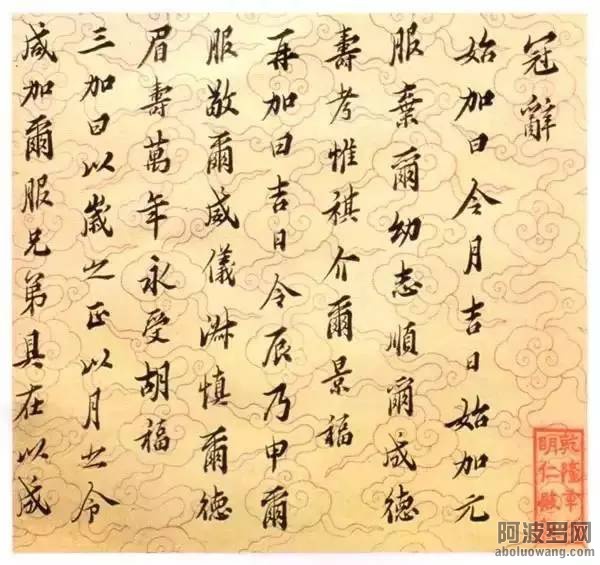 冠辭
始加曰令月吉日始加元
服棄爾幼志順爾成德
壽考惟祺介爾景福
再加曰吉日令辰乃申爾
服敬爾威儀淑慎爾德
眉壽萬年永受胡福
三加曰以歲之正以月之令
咸加爾服兄弟具在以成
乾隆年
明仁殿
阿波罗网
aboluowang.com